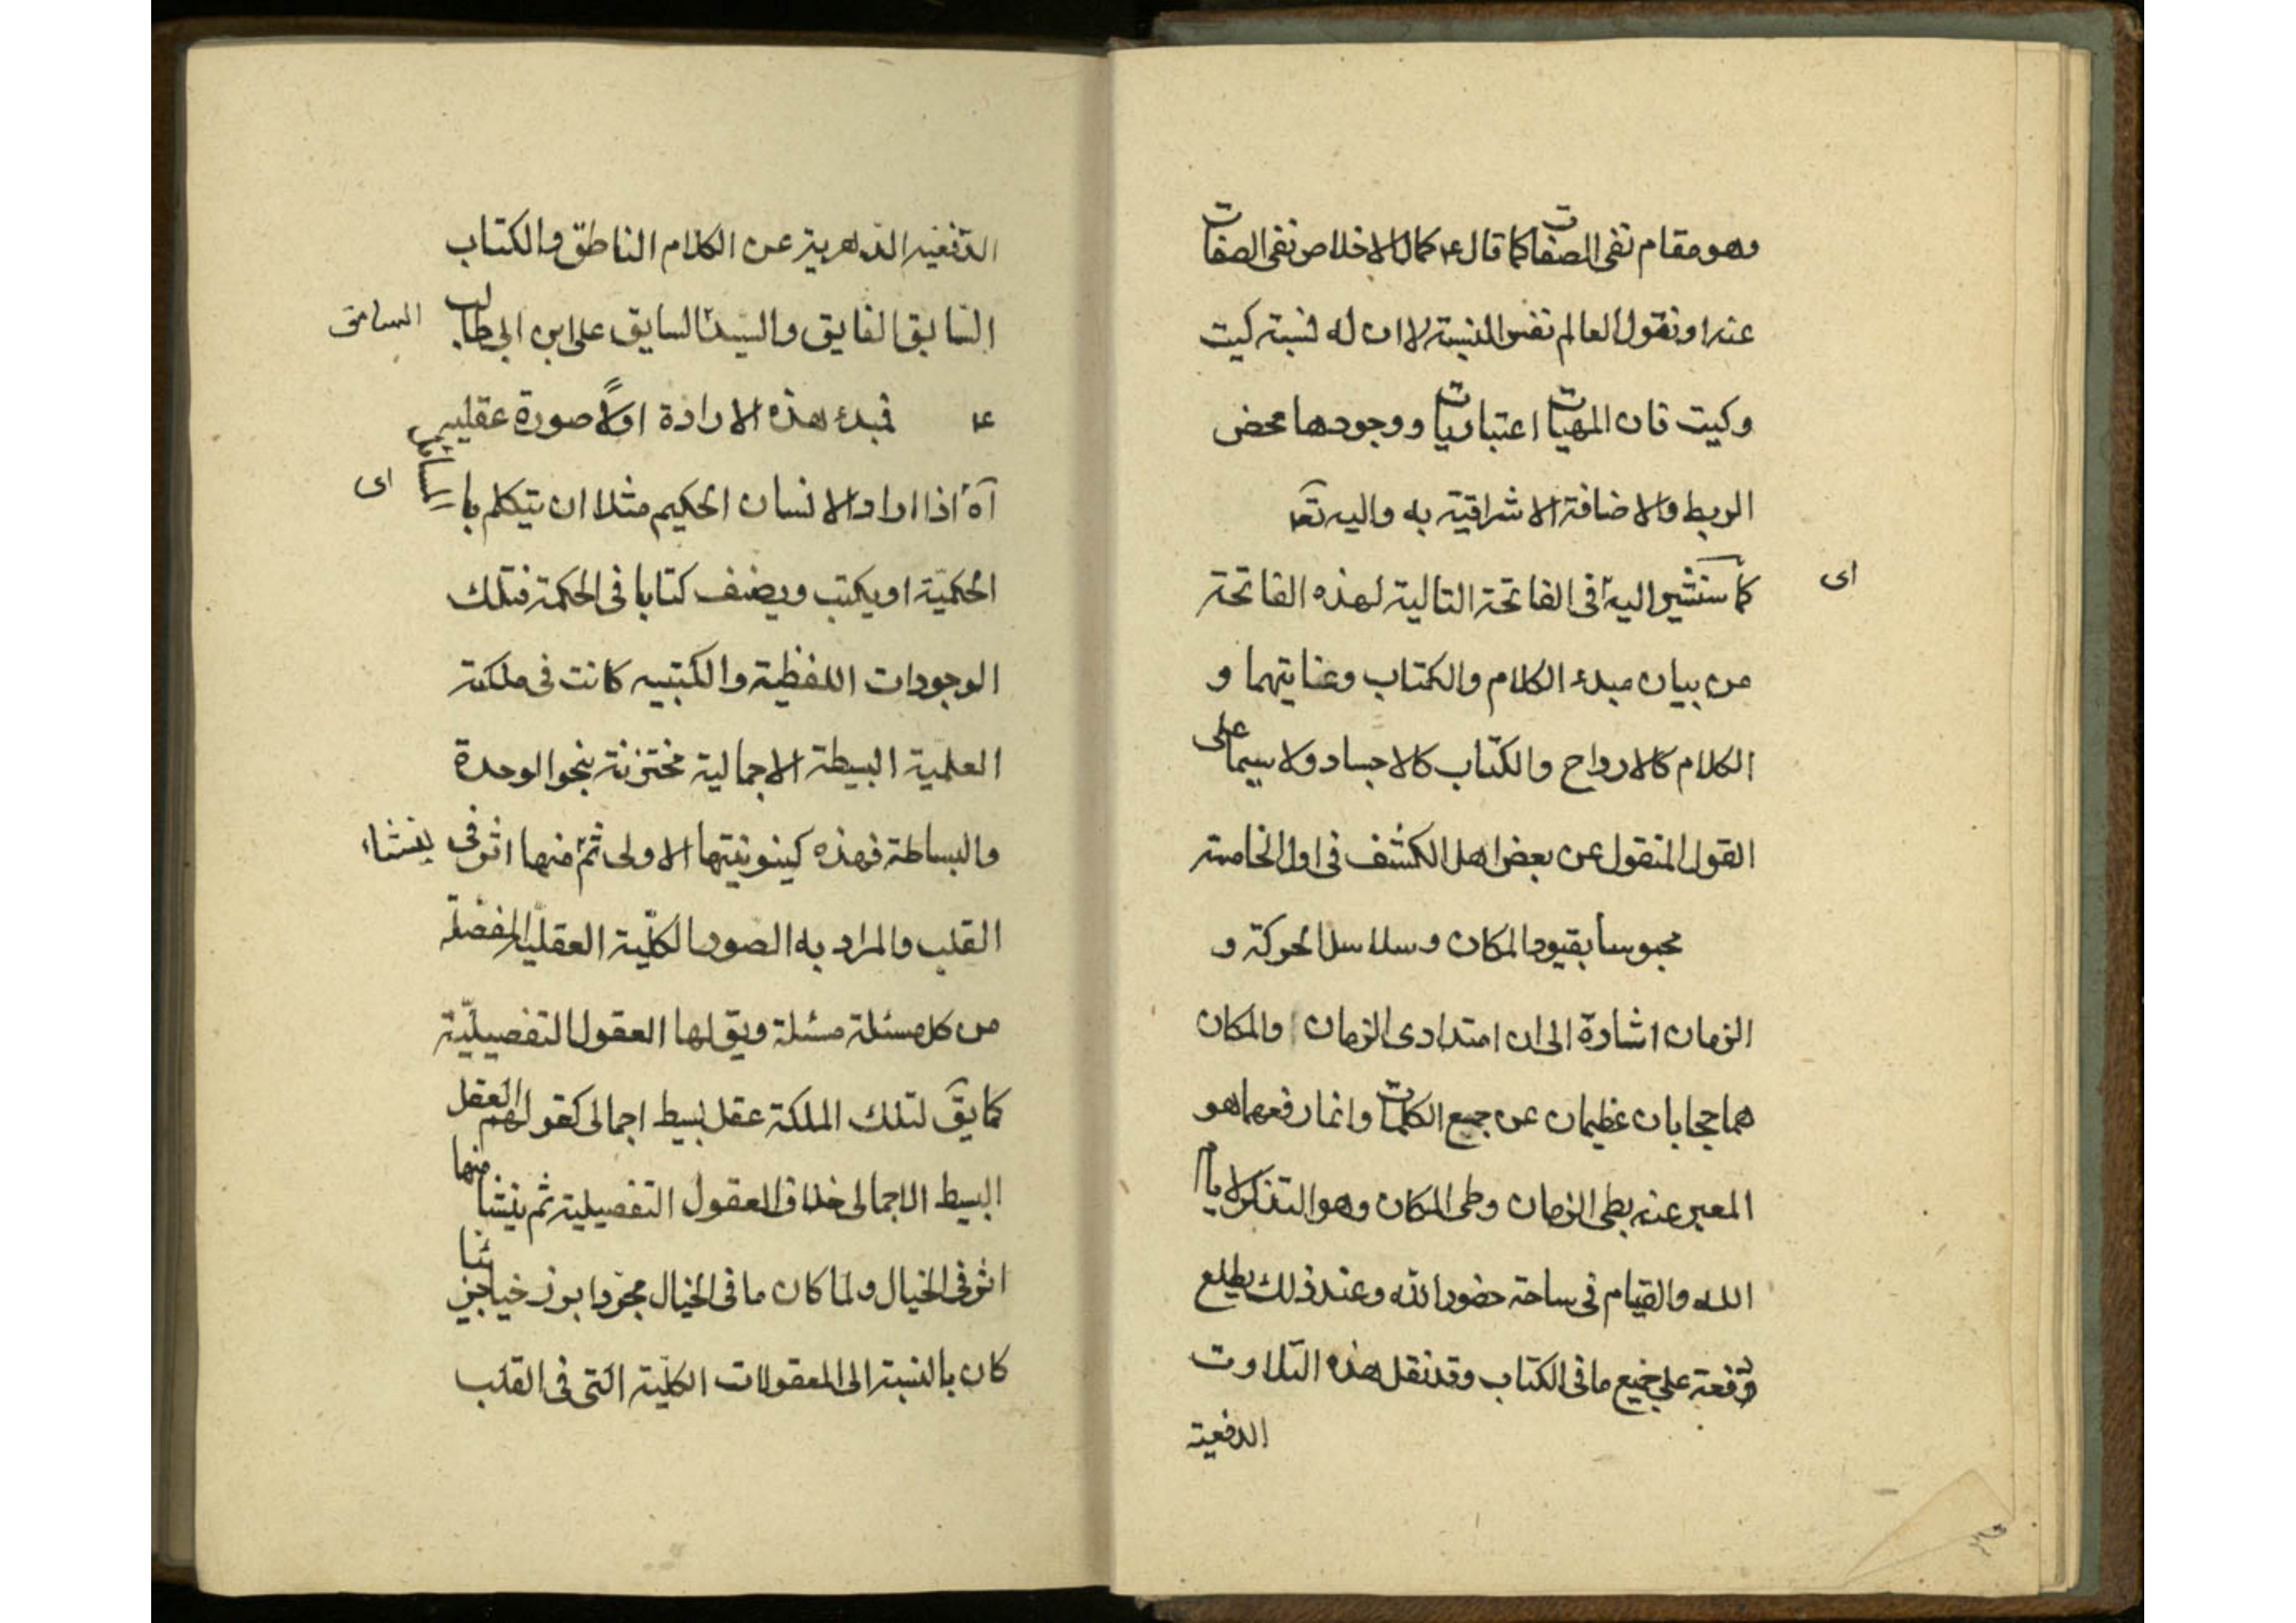 وهو مقام نفى الصفات كما قال ع كمال الاخلاص نفى الصفات
عنه او نقول العالم نفس النسبة لا ان له نسبة كيت
وكيت فان المهيات اعتباريات ووجودها محض
الربط والاضافة الاشراقية به واليه تعـ
كما سنشير اليه فى الفاتحة التالية لهذه الفاتحة
اى
من بيان مبدء الكلام والكتاب وغايتهما و
الكلام كالارواح والكتاب كالاجساد ولا سيما على
القول المنقول عن بعض اهل الكشف فى اول الخامسة
محبوسا بقيود المكان وسلاسل الحركة و
الزمان اشارة الى ان امتدادى الزمان والمكان
هما حجابان عظيمان عن جميع الكلمات وانما رفعهما هو
المعبر عنه بطى الزمان وطى المكان وهو التذكر لايام
الله والقيام فى ساحة حضور الله وعند ذلك يطلع
دفعة على جميع ما فى الكتاب وقد نقل هذه التلاوت
الدفعية
الدفعيه الدهرية عن الكلام الناطق والكتاب
السابق الفايق والسيد السايق على ابن ابى طالب
السامق
ع فمبدء هذه الارادة اولا صورة عقلية
آه اذا اراد الانسان الحكيم مثلا ان يتكلم بالمسائل
اى
الحكمية او يكتب ويصنف كتابا فى الحكمة فتلك
الوجودات اللفظية والكتبيه كانت فى ملكته
العلمية البسيطة الاجمالية مختزنة بنحو الوحدة
والبساطة فهذه كينونيتها الاولى ثم منها اثر فى
ينشاء
القلب والمراد به الصور الكلية العقلية المفصلة
من كل مسئلة مسئلة ويق لها العقول التفصيلية
كما يق لتلك الملكة عقل بسيط اجمالى كقولهم العقل
البسيط الاجمالى خلاق العقول التفصيلية ثم ينشا منها
اثر فى الخيال ولما كان ما فى الخيال مجردا برزخيا جزئيا
كان بالنسبة الى المعقولات الكلية التى فى القلب